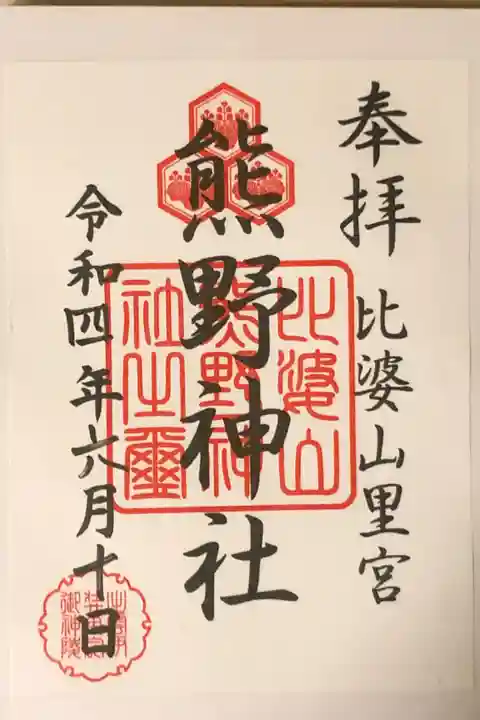 奉拝 比婆山里宮
熊野神社
比婆山
熊野神
社之璽
令和四年六月十日
御神陵